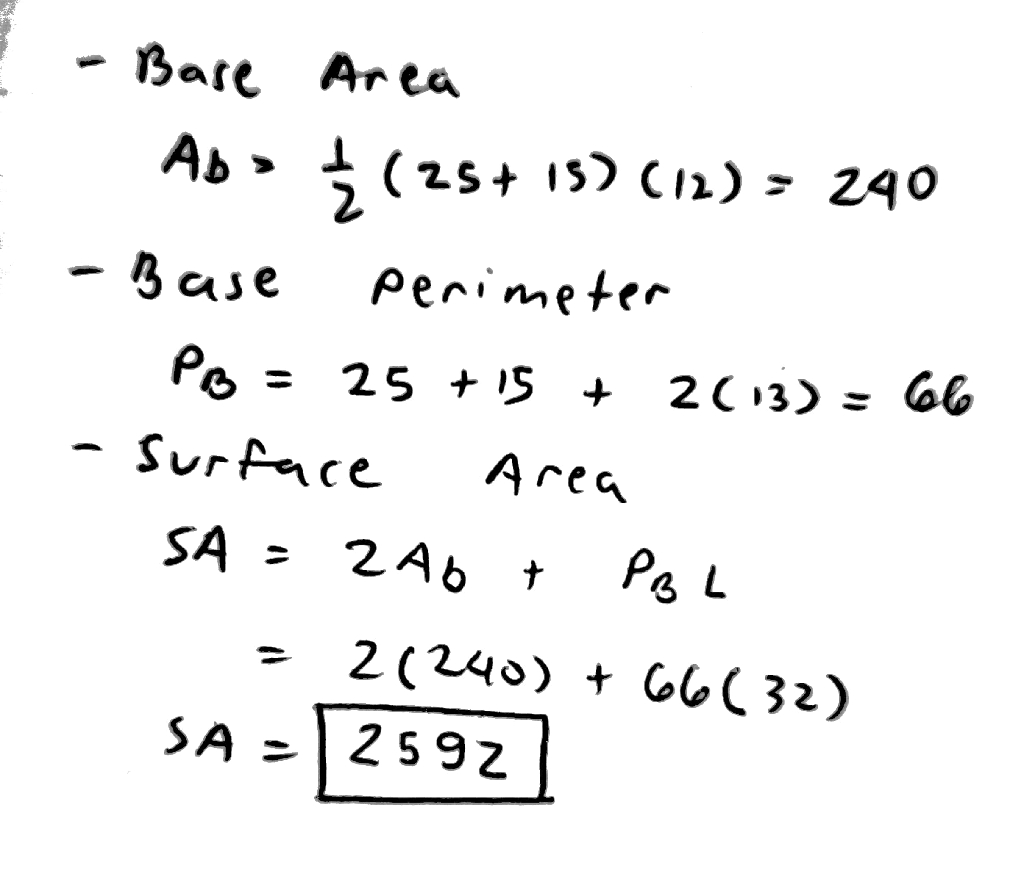 - Base Area
Ab = 1/2 (25 + 15) (12) = 240
- Base perimeter
PB = 25 + 15 + 2(13) = 66
- Surface Area
SA = 2Ab + PB L
= 2(240) + 66(32)
SA = 2592